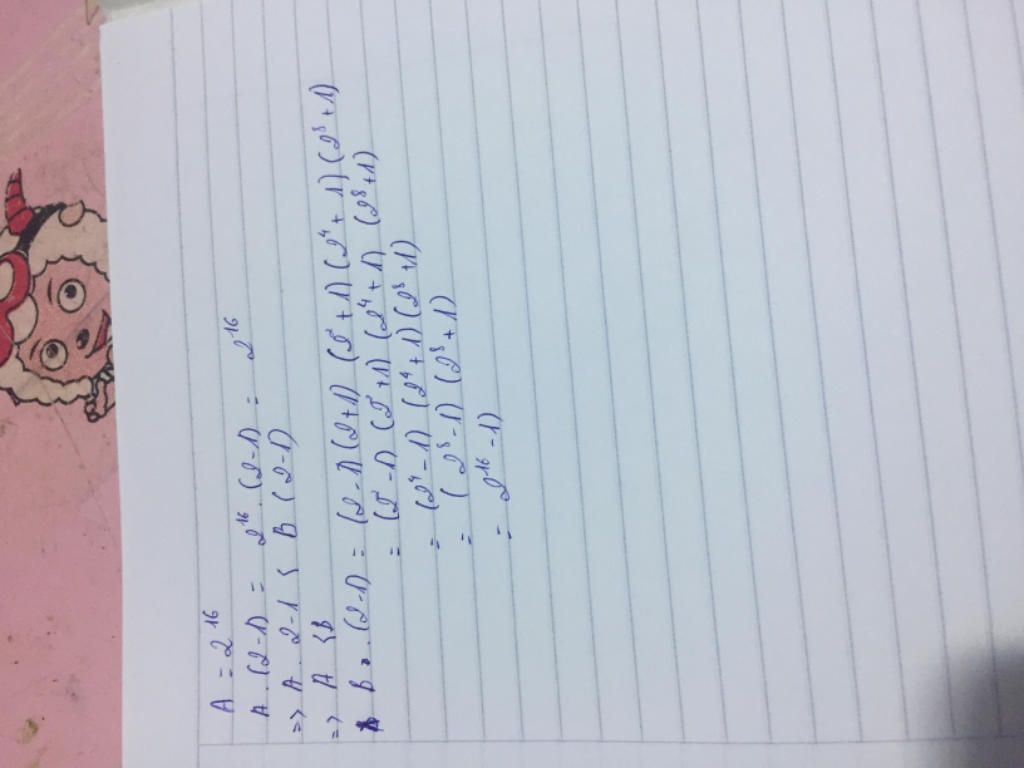 A = 2^16
A.(2-1) = 2^16.(2-1) = 2^16
=> A. 2-1 < B (2-1)
=> A < B
B.(2-1) = (2-1)(2+1) (2^2+1)(2^4+1)(2^8+1)
= (2^2-1) (2^2+1) (2^4+1) (2^8+1)
= (2^4-1) (2^4+1)(2^8+1)
= (2^8-1) (2^8+1)
= 2^16-1)